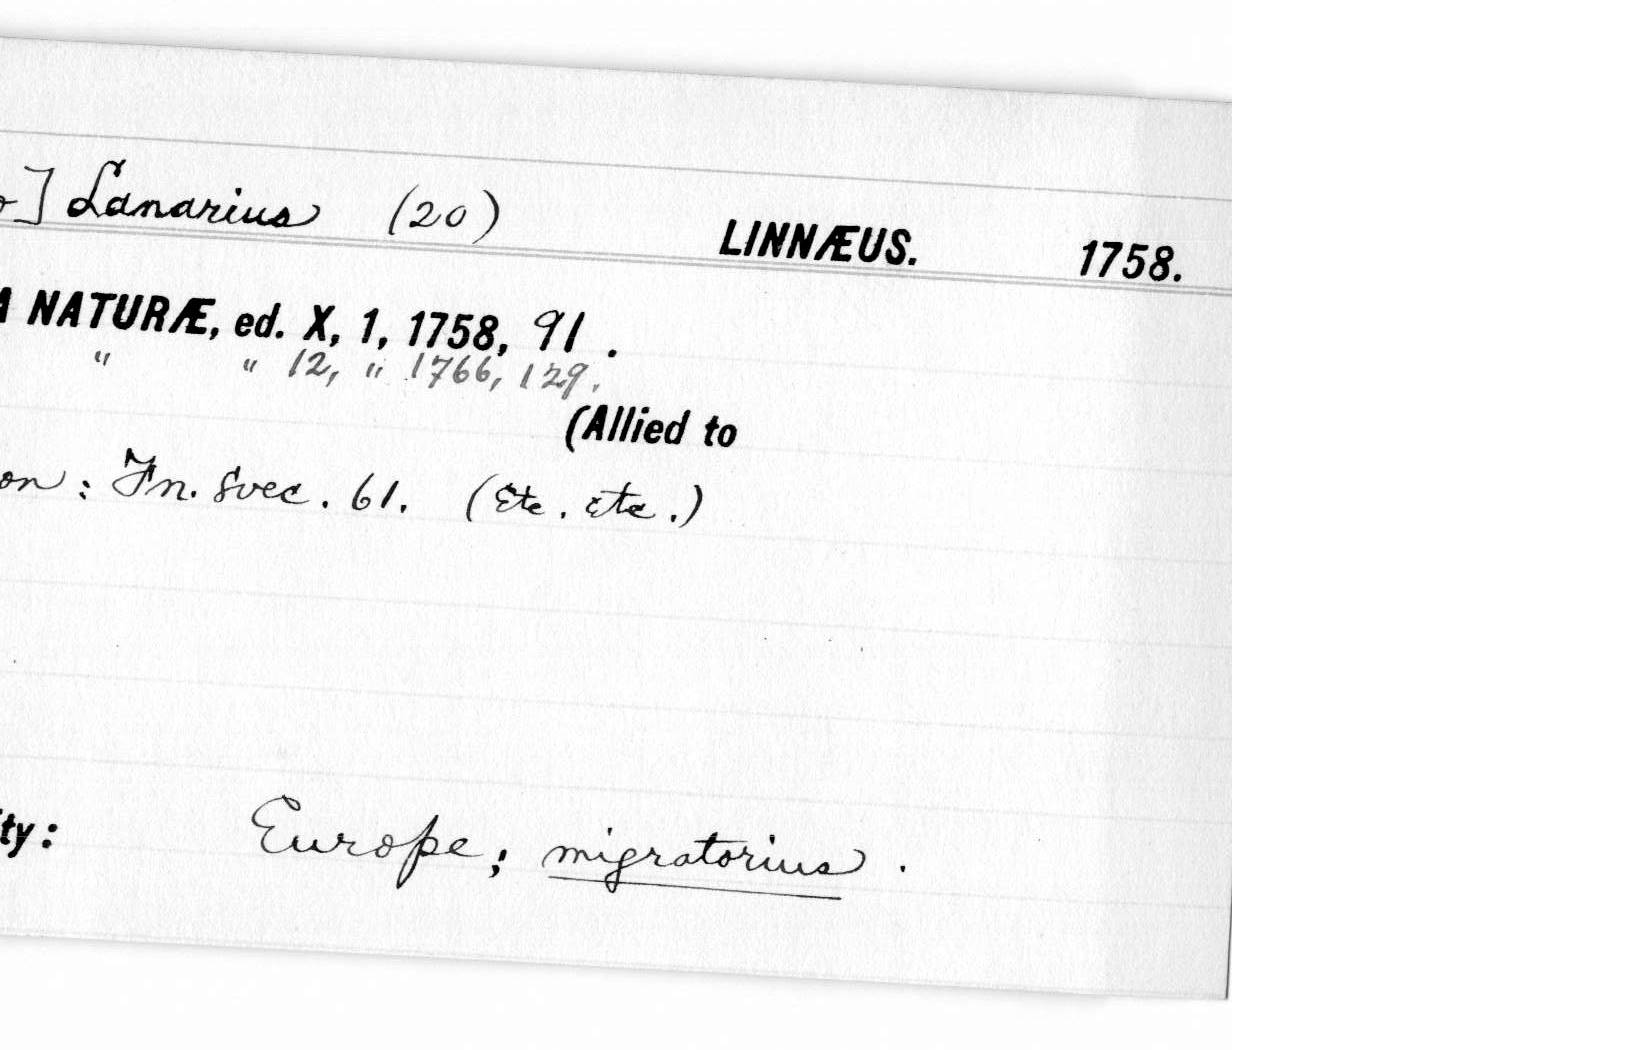 ] Lanarius (20) LINNÆUS. 1758.
A NATURÆ, ed. X, 1, 1758, 91 .
" " 12, " 1766, 129.
(Allied to
on : Fn. svec. 61. (Etc. etc.)
ity: Europe; migratorius .